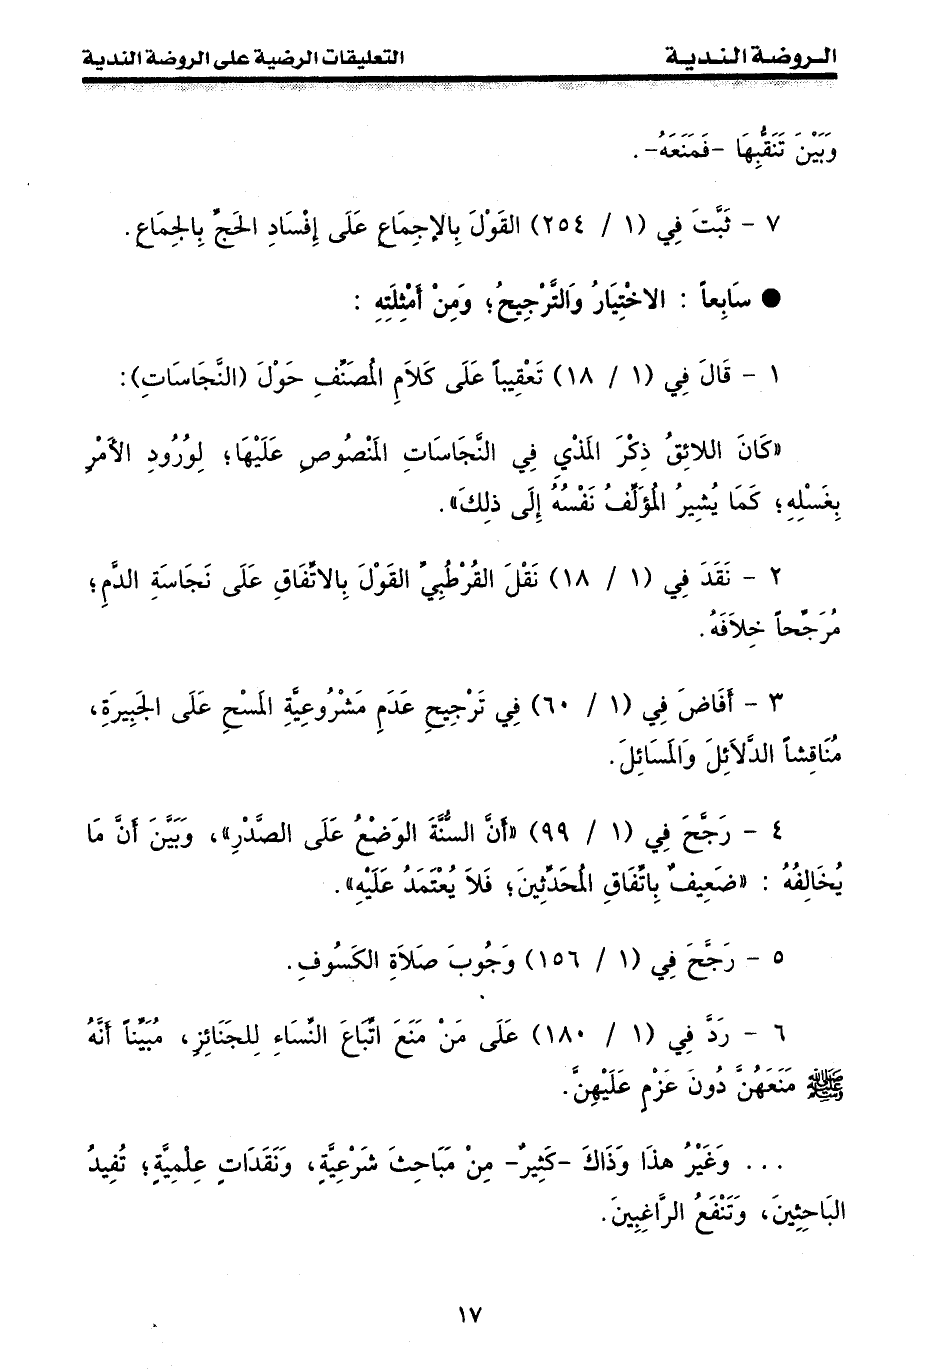 الروضة الندية
التعليقات الرضية على الروضة الندية
وَبَيْنَ تَنَقُّبِهَا -فَمَنَعَهُ-.
٧ - ثَبَّتَ فِي (١ / ٢٥٤) القَوْلَ بِالإِجمَاعِ عَلَى إِفْسَادِ الحَجِّ بِالجِمَاعِ.
● سَابِعاً : الاخْتِيَارُ وَالتَّرْجِيحُ؛ وَمِنْ أَمْثِلَتِهِ :
١ - قَالَ فِي (١ / ١٨) تَعْقِيباً عَلَى كَلَامِ المُصَنِّفِ حَوْلَ (النَّجَاسَاتِ):
«كَانَ اللائِقُ ذِكْرَ المَذْيِ فِي النَّجَاسَاتِ المَنْصُوصِ عَلَيْهَا؛ لِوُرُودِ الأَمْرِ
بِغَسْلِهِ؛ كَمَا يُشِيرُ المُؤَلِّفُ نَفْسُهُ إِلَى ذلِكَ».
٢ - نَقَدَ فِي (١ / ١٨) نَقْلَ القُرْطُبِيِّ القَوْلَ بِالاتِّفَاقِ عَلَى نَجَاسَةِ الدَّمِ؛
مُرَجِّحاً خِلَافَهُ.
٣ - أَفَاضَ فِي (١ / ٦٠) فِي تَرْجِيحِ عَدَمِ مَشْرُوعِيَّةِ المَسْحِ عَلَى الجَبِيرَةِ،
مُنَاقِشاً الدَّلَائِلَ وَالمَسَائِلَ.
٤ - رَجَّحَ فِي (١ / ٩٩) «أَنَّ السُّنَّةَ الوَضْعُ عَلَى الصَّدْرِ»، وَبَيَّنَ أَنَّ مَا
يُخَالِفُهُ : «ضَعِيفٌ بِاتِّفَاقِ المُحَدِّثِينَ؛ فَلَا يُعْتَمَدُ عَلَيْهِ».
٥ - رَجَّحَ فِي (١ / ١٥٦) وَجُوبَ صَلَاةِ الكَسُوفِ.
٦ - رَدَّ فِي (١ / ١٨٠) عَلَى مَنْ مَنَعَ اتِّبَاعَ النِّسَاءِ لِلجَنَائِزِ، مُبَيِّناً أَنَّهُ
ﷺ مَنَعَهُنَّ دُونَ عَزْمٍ عَلَيْهِنَّ.
... وَغَيْرُ هذَا وَذَاكَ -كَثِيرٌ- مِنْ مَبَاحِثَ شَرْعِيَّةٍ، وَنَقَدَاتٍ عِلْمِيَّةٍ؛ تُفِيدُ
البَاحِثِينَ، وَتَنْفَعُ الرَّاغِبِينَ.
١٧